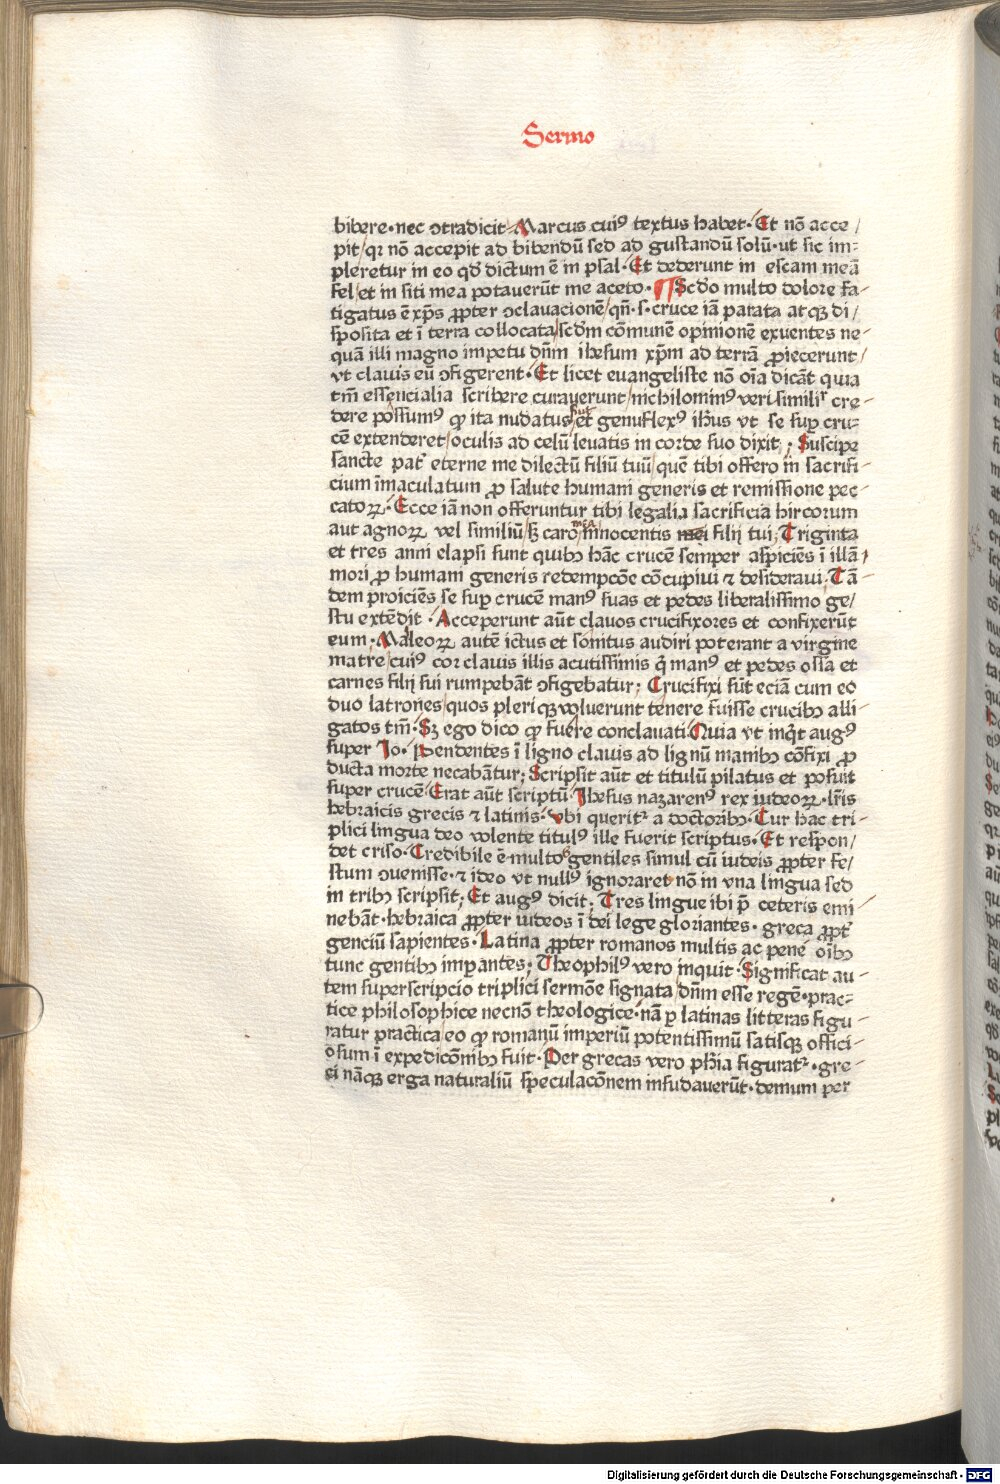 Sermo
bibere·nec ↄtradicit Marcus cui⁹ textus habet·Et nō acce/
pit/qꝛ nō accepit ad bibendū sed ad gustandū solū·ut sic im⸗
pleretur in eo qd̄ dictum ē in psal·Et dederunt in escam meā
fel/et in siti mea potauerūt me aceto·¶Scd̄o multo dolore fa⸗
tigatus ē xp̄s ꝓpter ↄclauacionē/qn̄·s·cruce iā parata atqꝫ di/
sposita et ī terra collocata/scd̄m cōmunē opinionē exuentes ne⸗
quā illi magno impetu dn̄m ihesum xp̄m ad terrā ꝓiecerunt/
vt clauis eū ↄfigerent·Et licet euangeliste nō oīa dicāt quia
tm̄ essencialia scribere curauerunt/nichilomin⁹ verisimilr̄ cre⸗
dere possum⁹ ꝙ ita nudatus fuit et genuflex⁹ ihūs vt se suꝑ cru⸗
cē extenderet/oculis ad celū leuatis in corde suo dixit; Suscipe
sancte pat̄ eterne me dilectū filiū tuū/quē tibi offero in sacrifi⸗
cium īmaculatum ꝓ salute humani generis et remissione pec⸗
catoꝝ·Ecce iā non offeruntur tibi legalia sacrificia hircorum
aut agnoꝝ vel similiū/sꝫ caro mea innocentis mei filij tui; Triginta
et tres anni elapsi sunt quibꝫ hāc crucē semper aspiciēs ī illā
mori ꝓ humani generis redempcōe cōcupiui ⁊ desideraui·Tā⸗
dem proiciēs se suꝑ crucē man⁹ suas et pedes liberalissimo ge/
stu extēdit·Acceperunt aūt clauos crucifixores et confixerūt
eum·Malleoꝝ autē ictus et sonitus audiri poterant a virgine
matre/cui⁹ cor clauis illis acutissimis q̄ man⁹ et pedes ossa et
carnes filij sui rumpebāt ↄfigebatur; Crucifixi sūt eciā cum eo
duo latrones/quos pleriqꝫ voluerunt tenere fuisse crucibꝫ alli⸗
gatos tm̄·Sꝫ ego dico ꝙ fuere conclauati·Quia vt inq̄t aug⁹
super Io·Pendentes ī ligno clauis ad lignū manibꝫ cōfixi ꝓ
ducta morte necabātur; Scripsit aūt et titulū pilatus et posuit
super crucē·Erat aūt scriptū·Ihesus nazaren⁹ rex iudeoꝝ·lr̄is
hebraicis grecis ⁊ latinis·Vbi querit̄ a doctoribꝫ·Cur hac tri⸗
plici lingua deo volente titul⁹ ille fuerit scriptus·Et respon/
det criso·Credibile ē multos gentiles simul cū iudeis ꝓpter fe/
stum ↄuenisse·⁊ ideo vt null⁹ ignoraret nō in vna lingua sed
in tribꝫ scripsit; Et aug⁹ dicit·Tres lingue ibi p̄ ceteris emi⸗
nebāt·hebraica ꝓpter iudeos ī dei lege gloriantes·greca ꝓpt̄
genciū sapientes·Latina ꝓpter romanos multis ac pene oībꝫ
tunc gentibꝫ imꝑantes; Theophil⁹ vero inquit·Significat au⸗
tem superscripcio triplici sermōe signata/dn̄m esse regē·prac⸗
tice philosophice necnō theologice·nā ꝑ latinas litteras figu⸗
ratur practica/eo ꝙ romanū imperiū potentissimū satisqꝫ offici⸗
osum ī expedicōnibꝫ fuit·Per grecas vero ph̄ia figurat̄·gre⸗
ci nāqꝫ erga naturaliū speculacōnem insudauerūt·demum per
Digitalisierung gefördert durch die Deutsche Forschungsgemeinschaft - DFG